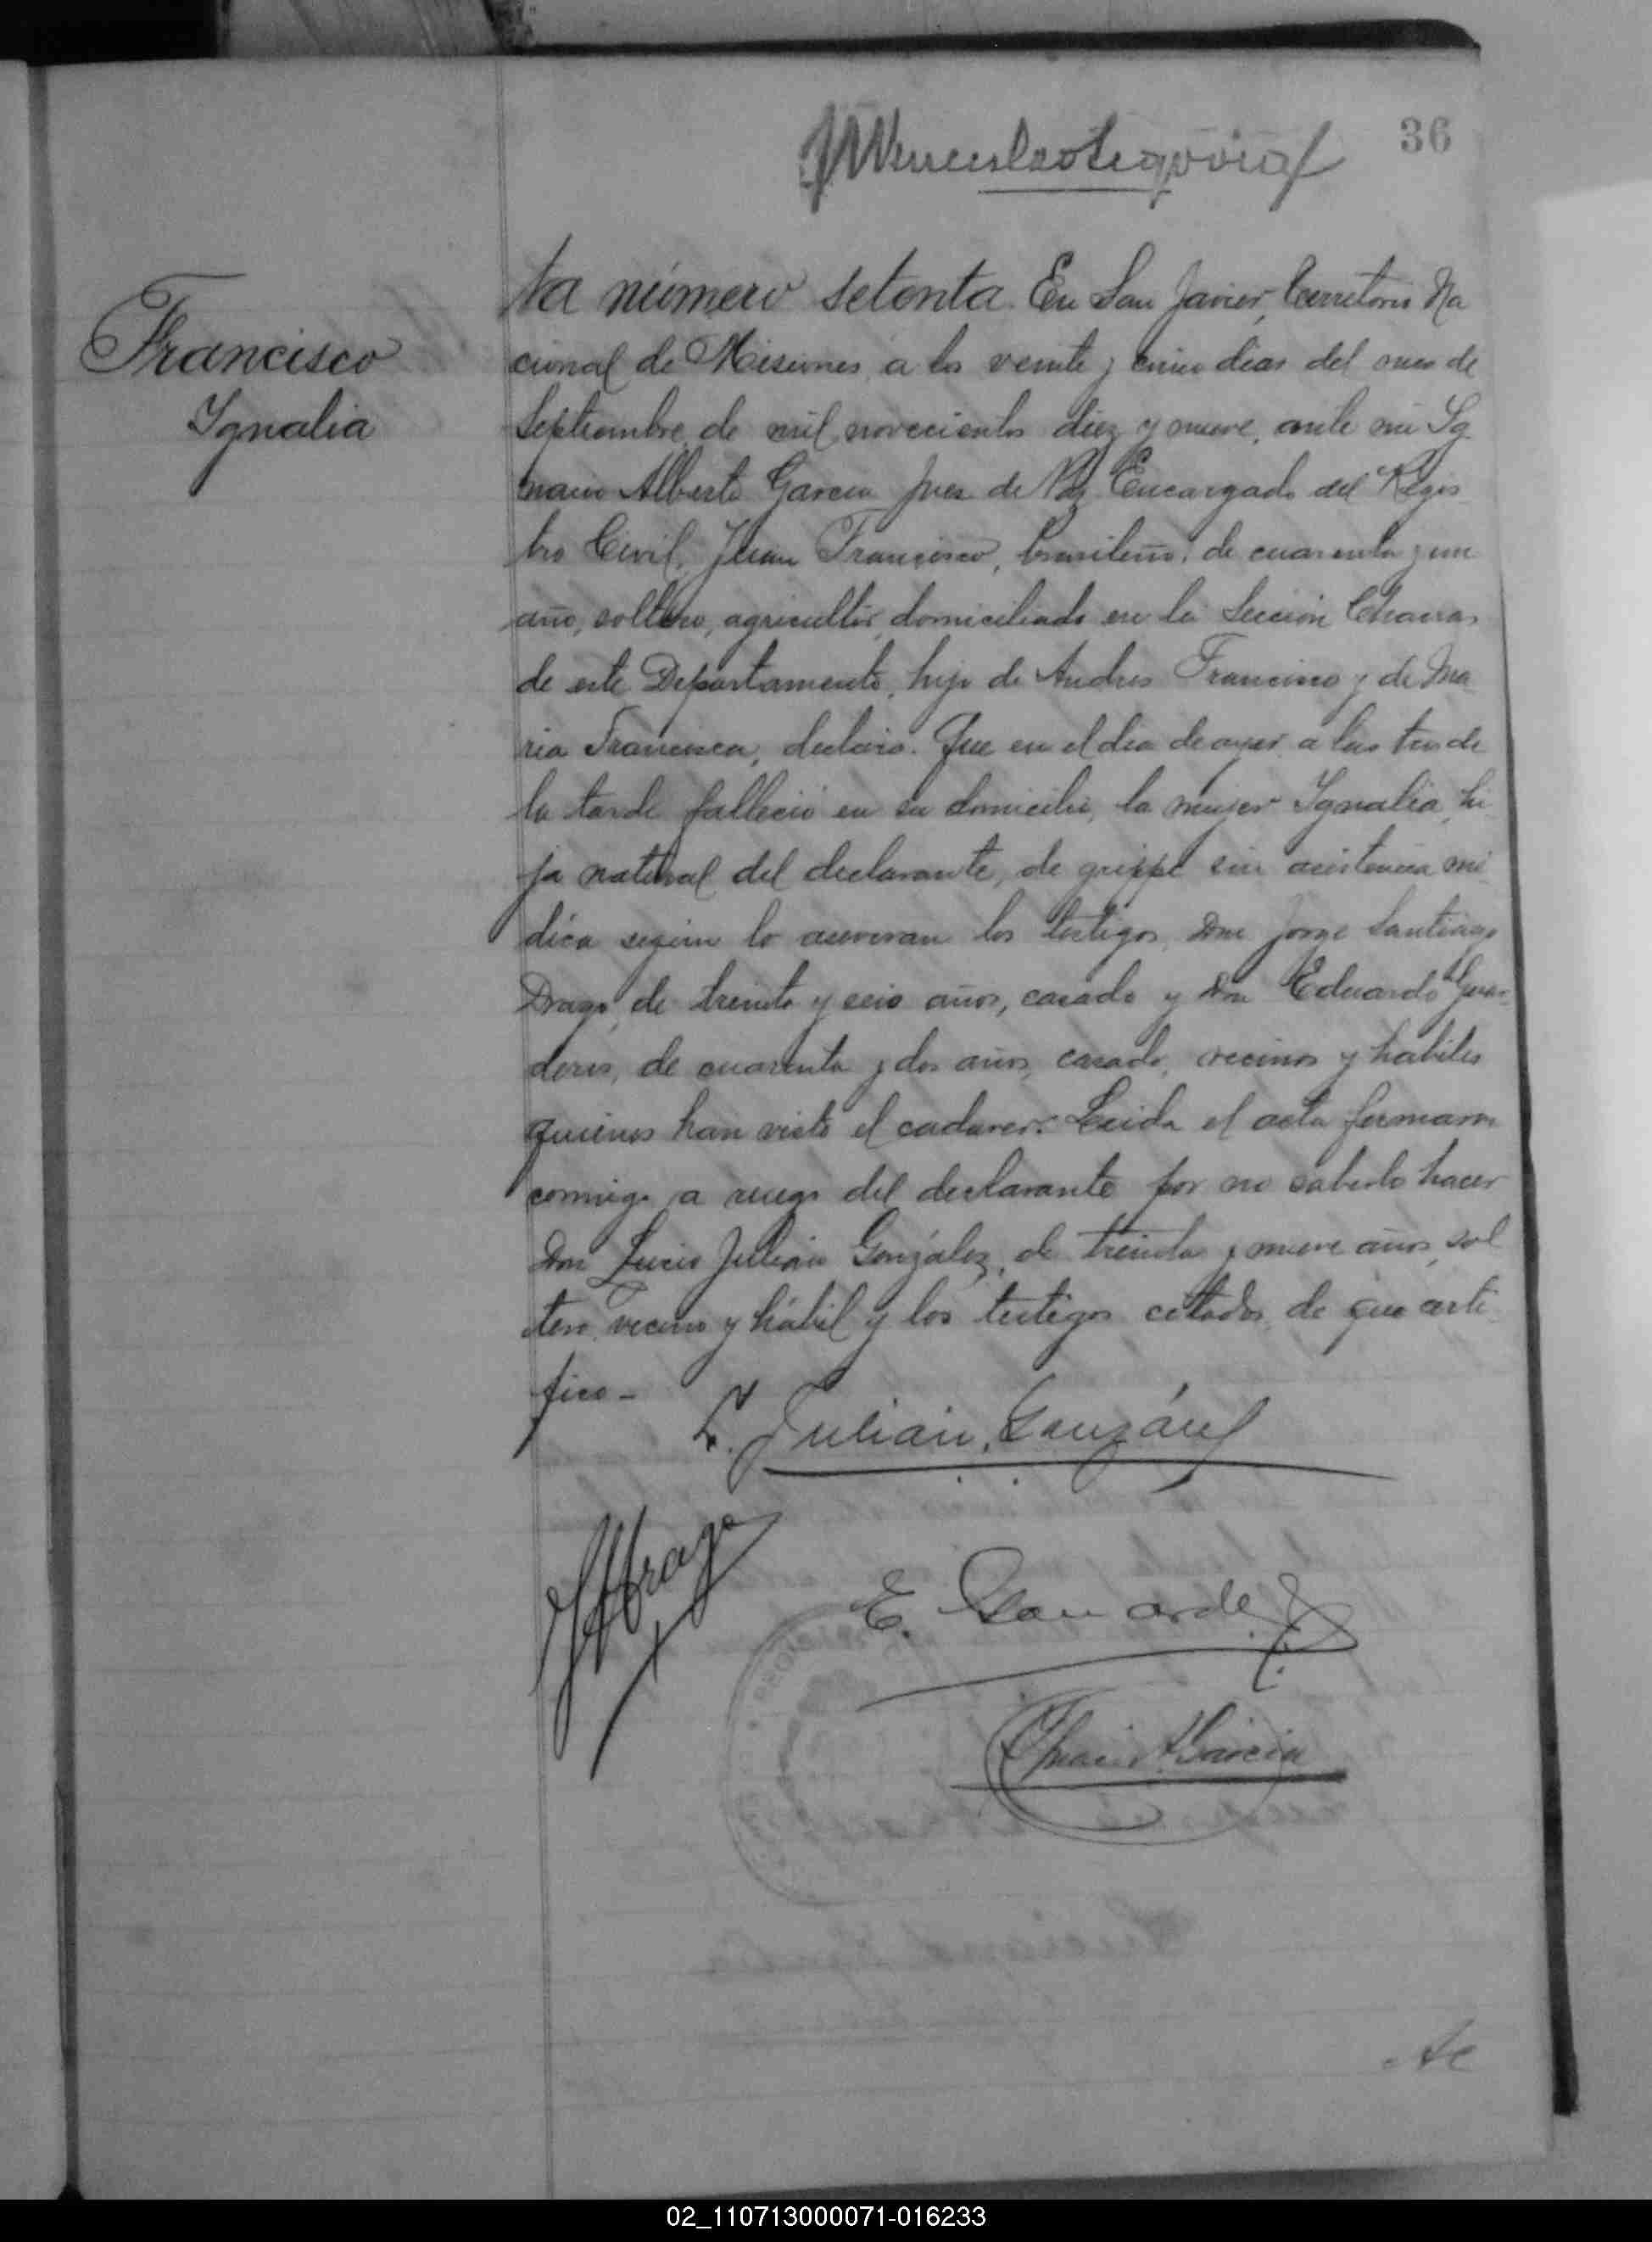 36
Francisco
Ignalia
ta número setenta. En San Javier, Territorio Na
cional de Misiones, a los veinte y cinco dias del mes de
Septiembre de mil novecientos diez y nueve, ante mi Ig
nacio Alberto Garcia Juez de Paz Encargado del Regis
tro Civil, Juan Francisco, brasileño, de cuarenta y un
año, soltero, agricultor, domiciliado en la Sección Chacras
de este Departamento, hijo de Andres Francisco y de Ma
ria Francisca, declaró: Que en el dia de ayer a las tres de
la tarde falleció en su domicilio, la mujer Ignalia, hi
ja natural del declarante, de grippe sin asistencia mé
dica según lo aseveran los testigos, Don Jorge Santiago
Drago, de treinta y seis años, casado y Don Eduardo
de cuarenta y dos años, casado, vecinos y habiles
quienes han visto el cadaver. Leida el acta firmaron
conmigo, a ruego del declarante por no saberlo hacer
Don Lucio Julián González, de treinta y nueve años, sol
tero, vecino y hábil y los testigos citados de que certi
fico -
L. Julián González
JSDrago
E.
Ignacio A Garcia
Ac
02_110713000071-016233